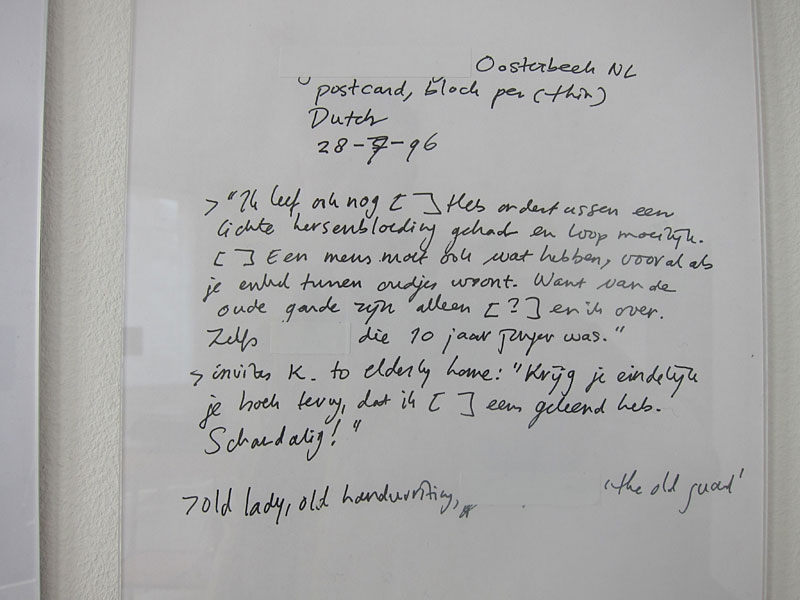 Oosterbeek NL
postcard, block pen (thin)
Dutch
28-7-96
> "Ik leef ook nog [ ] Heb ondertussen een
lichte hersenbloeding gehad en loop moeilijk.
[ ] Een mens moet ook wat hebben, vooral als
je enkel tussen oudjes woont. Want van de
oude garde zijn alleen [?] en ik over.
Zelfs die 10 jaar jonger was."
> invites K. to elderly home: "Krijg je eindelijk
je boek terug, dat ik [ ] eens geleend heb.
Schandalig!"
> old lady, old handwriting,
'the old guard'